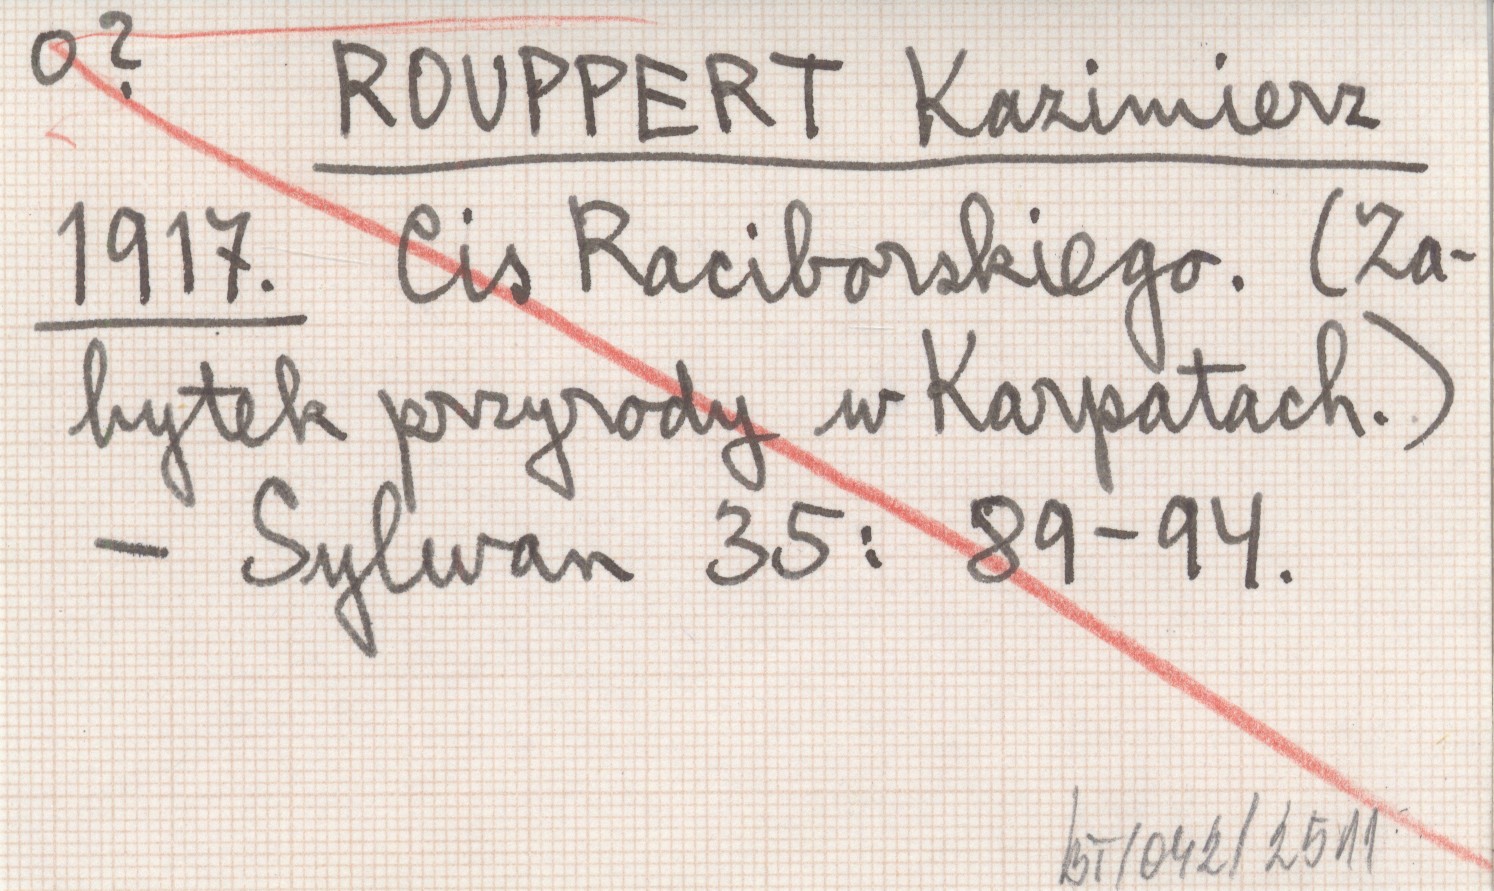 o?
ROUPPERT Kazimierz
1917. Cis Raciborskiego. (Za-
bytek przyrody w Karpatach.)
– Sylwan 35: 89–94.
/042/2511